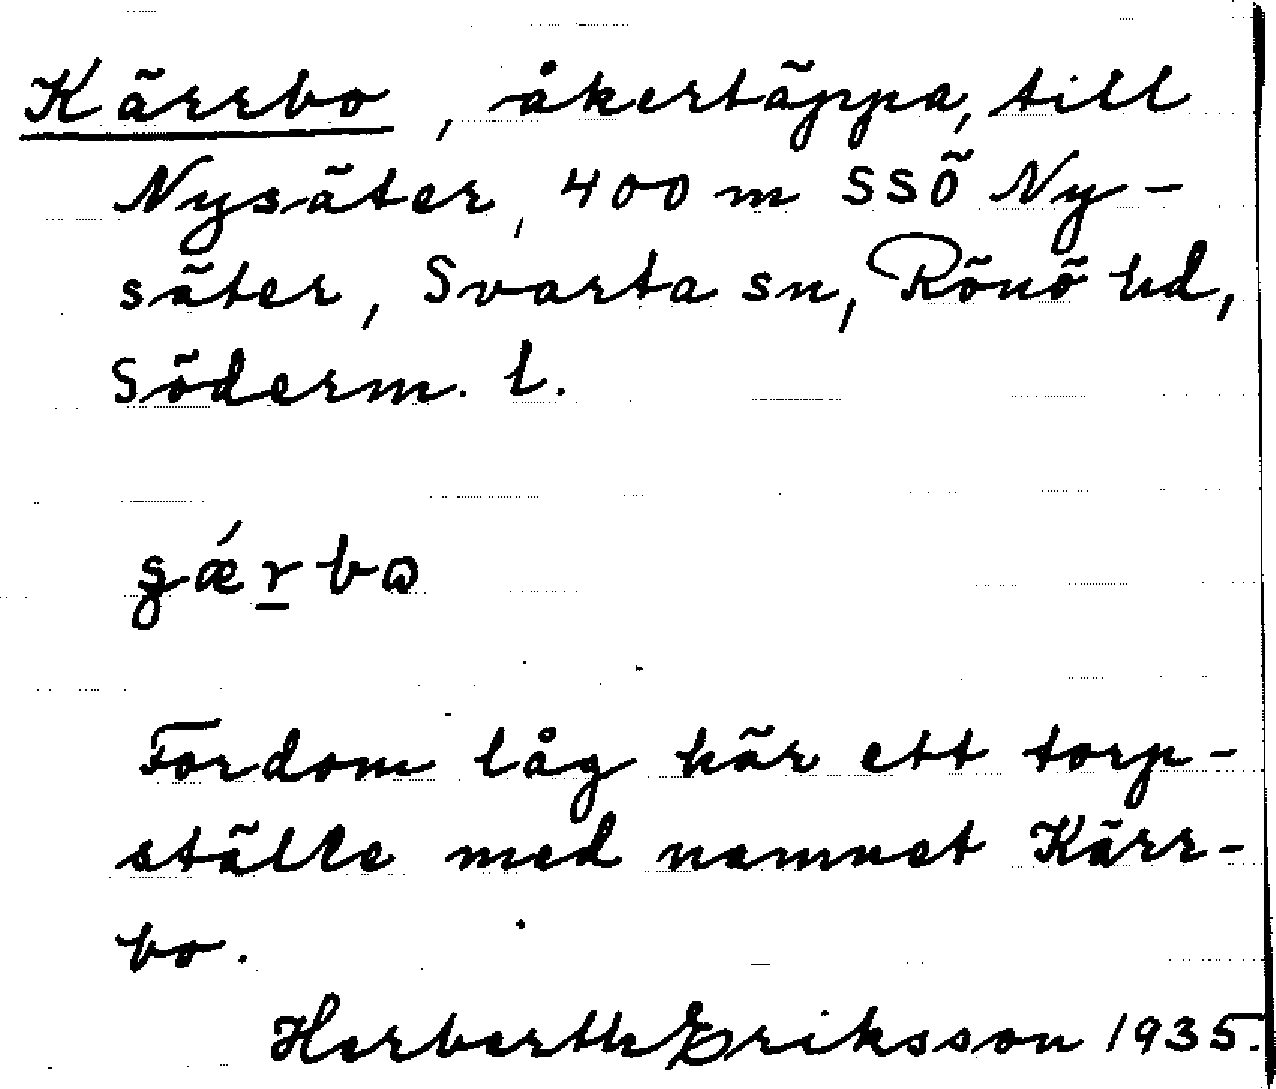 Kärrbo, åkertäppa, till
Nysäter, 400 m SSÖ Ny-
säter, Svarta sn, Rönö hd,
Söderm. l.
gǽr̲bɷ
Fordom låg här ett torp-
ställe med namnet Kärr-
bo.
Herberth Eriksson 1935.